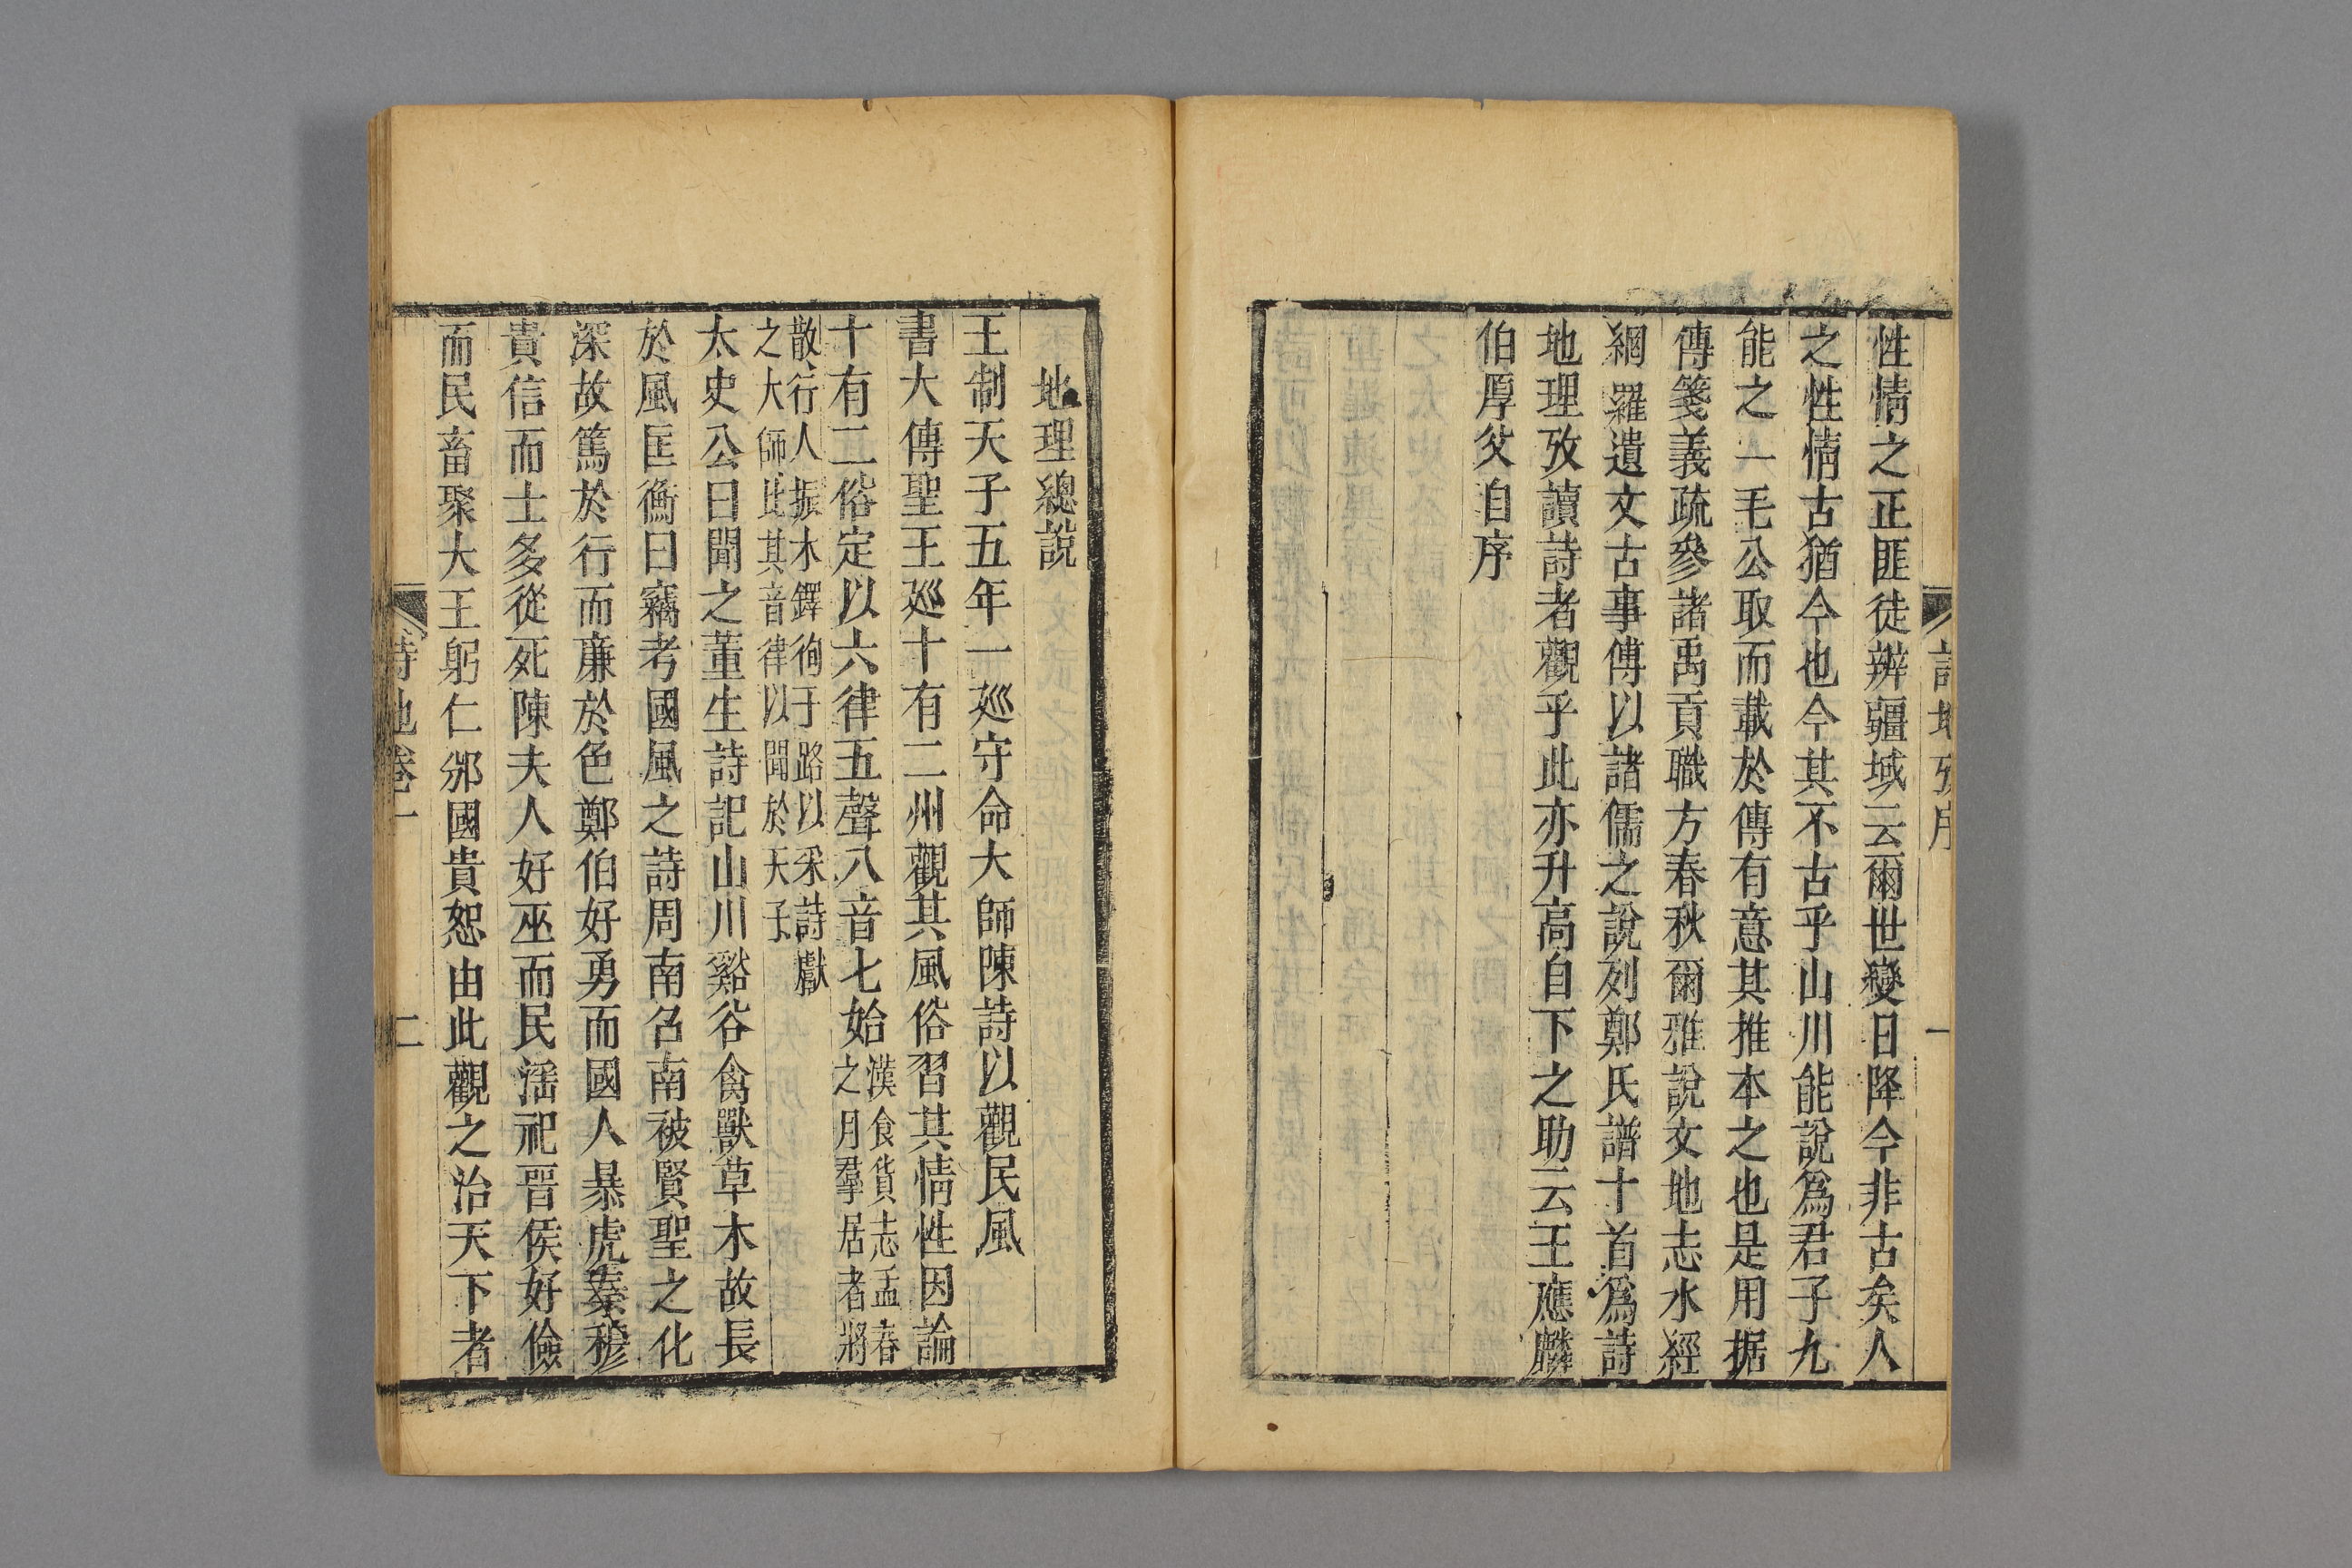 詩地攷序
一
性情之正匪徒辨疆域云爾世變日降今非古矣人
之性情古猶今也今其不古乎山川能說爲君子九
能之一毛公取而載於傳有意其推本之也是用据
傳箋義疏參諸禹貢職方春秋爾雅說文地志水經
網羅遺文古事傅以諸儒之說列鄭氏譜十首爲詩
地理攷讀詩者觀乎此亦升高自下之助云王應麟
伯厚父自序
地理總說
王制天子五年一廵守命大師陳詩以觀民風
書大傳聖王廵十有二州觀其風俗習其情性因論
十有二俗定以六律五聲八音七始
漢食貨志孟春
之月羣居者將
散行人振木鐸徇于路以采詩獻
之大師比其音律以聞於天子
太史公曰聞之董生詩記山川谿谷禽獸草木故長
於風匡衡曰竊考國風之詩周南召南被賢聖之化
深故篤於行而廉於色鄭伯好勇而國人暴虎秦穆
貴信而士多從死陳夫人好巫而民淫祀晉侯好儉
而民畜聚大王躬仁邠國貴恕由此觀之治天下者
詩地卷一
二